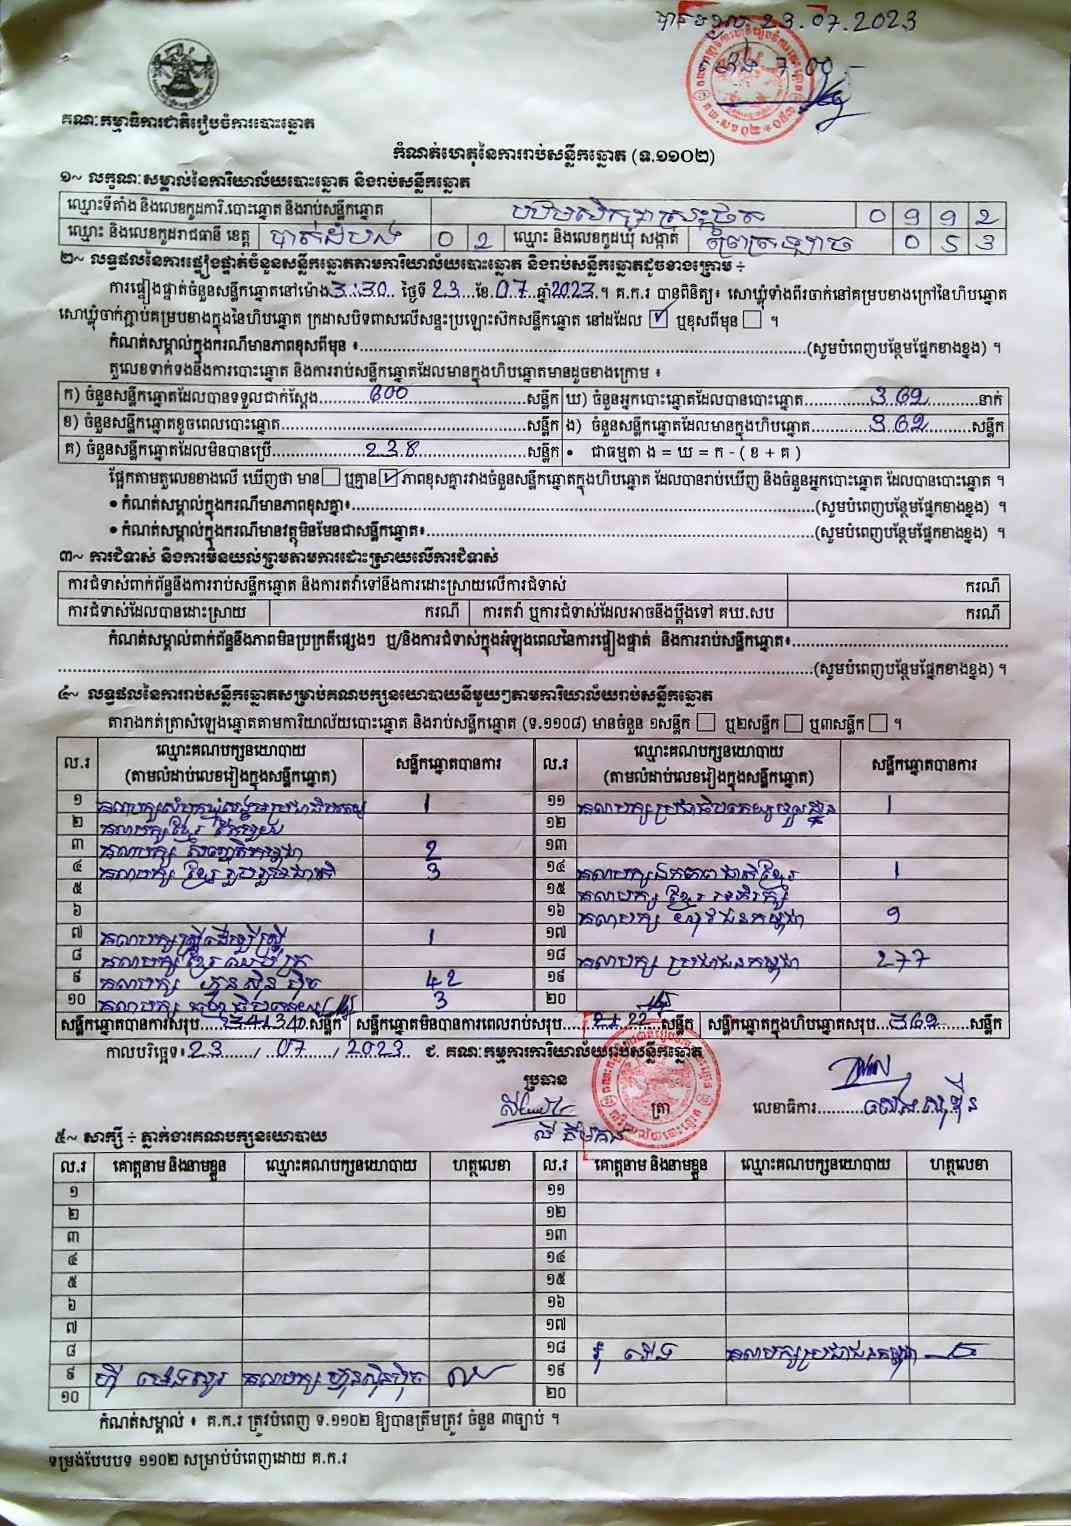 23.07.2023
ម៉ោង 7:00
គណៈកម្មាធិការជាតិរៀបចំការបោះឆ្នោត
កំណត់ហេតុនៃការរាប់សន្លឹកឆ្នោត (ទ.១១០២)
១~ លក្ខណៈសម្គាល់នៃការិយាល័យបោះឆ្នោត និងរាប់សន្លឹកឆ្នោត
ឈ្មោះទីតាំង និងលេខកូដការិ.បោះឆ្នោត និងរាប់សន្លឹកឆ្នោត 0 9 9 2
ឈ្មោះ និងលេខកូដរាជធានី ខេត្ត បាត់ដំបង 0 2 ឈ្មោះ និងលេខកូដឃុំ សង្កាត់ 0 5 3
២~ លទ្ធផលនៃការផ្ទៀងផ្ទាត់ចំនួនសន្លឹកឆ្នោតតាមការិយាល័យបោះឆ្នោត និងរាប់សន្លឹកឆ្នោតដូចខាងក្រោម ÷
ការផ្ទៀងផ្ទាត់ចំនួនសន្លឹកឆ្នោតនៅម៉ោង 3:30 ថ្ងៃទី 23 ខែ 07 ឆ្នាំ 2023 ។ គ.ក.រ បានពិនិត្យ៖ សោឃ្លុំទាំងពីរចាក់នៅគម្របខាងក្រៅនៃហិបឆ្នោត
សោឃ្លុំចាក់ភ្ជាប់គម្របខាងក្នុងនៃហិបឆ្នោត ក្រដាសបិទពាសលើសន្ទះប្រឡោះស៊កសន្លឹកឆ្នោត នៅដដែល ☑ ឬខុសពីមុន ☐ ។
កំណត់សម្គាល់ក្នុងករណីមានភាពខុសពីមុន ៖ (សូមបំពេញបន្ថែមផ្នែកខាងខ្នង) ។
តួលេខទាក់ទងនឹងការបោះឆ្នោត និងការរាប់សន្លឹកឆ្នោតដែលមានក្នុងហិបឆ្នោតមានដូចខាងក្រោម ៖
ក) ចំនួនសន្លឹកឆ្នោតដែលបានទទួលជាក់ស្តែង 600 សន្លឹក ឃ) ចំនួនអ្នកបោះឆ្នោតដែលបានបោះឆ្នោត 362 នាក់
ខ) ចំនួនសន្លឹកឆ្នោតខូចពេលបោះឆ្នោត សន្លឹក ង) ចំនួនសន្លឹកឆ្នោតដែលមានក្នុងហិបឆ្នោត 362 សន្លឹក
គ) ចំនួនសន្លឹកឆ្នោតដែលមិនបានប្រើ 238 សន្លឹក • ជាធម្មតា ង = ឃ = ក - ( ខ + គ )
ផ្អែកតាមតួលេខខាងលើ ឃើញថា មាន ☐ ឬគ្មាន ☑ ភាពខុសគ្នារវាងចំនួនសន្លឹកឆ្នោតក្នុងហិបឆ្នោត ដែលបានរាប់ឃើញ និងចំនួនអ្នកបោះឆ្នោត ដែលបានបោះឆ្នោត ។
• កំណត់សម្គាល់ក្នុងករណីមានភាពខុសគ្នា៖ (សូមបំពេញបន្ថែមផ្នែកខាងខ្នង) ។
• កំណត់សម្គាល់ក្នុងករណីមានវត្ថុមិនមែនជាសន្លឹកឆ្នោត៖ (សូមបំពេញបន្ថែមផ្នែកខាងខ្នង) ។
៣~ ការជំទាស់ និងការមិនយល់ព្រមតាមការដោះស្រាយលើការជំទាស់
ការជំទាស់ពាក់ព័ន្ធនឹងការរាប់សន្លឹកឆ្នោត និងការតវ៉ាទៅនឹងការដោះស្រាយលើការជំទាស់ ករណី
ការជំទាស់ដែលបានដោះស្រាយ ករណី ការតវ៉ា ឬការជំទាស់ដែលអាចនឹងប្តឹងទៅ គឃ.សប ករណី
កំណត់សម្គាល់ពាក់ព័ន្ធនឹងភាពមិនប្រក្រតីផ្សេងៗ ឬ/និងការជំទាស់ក្នុងអំឡុងពេលនៃការផ្ទៀងផ្ទាត់ និងការរាប់សន្លឹកឆ្នោត៖
(សូមបំពេញបន្ថែមផ្នែកខាងខ្នង) ។
៤~ លទ្ធផលនៃការរាប់សន្លឹកឆ្នោតសម្រាប់គណបក្សនយោបាយនីមួយៗតាមការិយាល័យរាប់សន្លឹកឆ្នោត
តារាងកត់ត្រាសំឡេងឆ្នោតតាមការិយាល័យបោះឆ្នោត និងរាប់សន្លឹកឆ្នោត (ទ.១១០៨) មានចំនួន ១សន្លឹក ☐ ឬ២សន្លឹក ☐ ឬ៣សន្លឹក ☐ ។
ល.រ ឈ្មោះគណបក្សនយោបាយ (តាមលំដាប់លេខរៀងក្នុងសន្លឹកឆ្នោត) សន្លឹកឆ្នោតបានការ ល.រ ឈ្មោះគណបក្សនយោបាយ (តាមលំដាប់លេខរៀងក្នុងសន្លឹកឆ្នោត) សន្លឹកឆ្នោតបានការ
១ គណបក្សសំបុកឃ្មុំសង្គមប្រជាធិបតេយ្យ 1 ១១ គណបក្ស ប្រជាធិបតេយ្យមូលដ្ឋាន 1
២ គណបក្ស ខ្មែរ តែមួយ ១២
៣ គណបក្ស 2 ១៣
៤ គណបក្ស ខ្មែរ រួបរួមជាតិ 3 ១៤ គណបក្សឯកភាពជាតិខ្មែរ 1
៥ ១៥ គណបក្ស ខ្មែរ អភិរក្ស
៦ ១៦ គណបក្ស យុវជនកម្ពុជា 9
៧ គណបក្សស្ត្រីដើម្បីស្ត្រី 1 ១៧
៨ គណបក្ស ខ្មែរ ឈប់ ក្រ ១៨ គណបក្ស ប្រជាជនកម្ពុជា 277
៩ គណបក្ស ហ៊្វុនស៊ិនប៉ិច 42 ១៩
១០ គណបក្ស 3 ២០
សន្លឹកឆ្នោតបានការសរុប 340 សន្លឹក សន្លឹកឆ្នោតមិនបានការពេលរាប់សរុប 22 សន្លឹក សន្លឹកឆ្នោតក្នុងហិបឆ្នោតសរុប 362 សន្លឹក
កាលបរិច្ឆេទ៖ 23 / 07 / 2023 ជ. គណៈកម្មការការិយាល័យរាប់សន្លឹកឆ្នោត
ប្រធាន
ត្រា លេខាធិការ
៥~ សាក្សី ÷ ភ្នាក់ងារគណបក្សនយោបាយ
ល.រ គោត្តនាម និងនាមខ្លួន ឈ្មោះគណបក្សនយោបាយ ហត្ថលេខា ល.រ គោត្តនាម និងនាមខ្លួន ឈ្មោះគណបក្សនយោបាយ ហត្ថលេខា
១ ១១
២ ១២
៣ ១៣
៤ ១៤
៥ ១៥
៦ ១៦
៧ ១៧
៨ ១៨ គណបក្សប្រជាជនកម្ពុជា
៩ គណបក្ស ហ៊្វុនស៊ិនប៉ិច ១៩
១០ ២០
កំណត់សម្គាល់ ៖ គ.ក.រ ត្រូវបំពេញ ទ.១១០២ ឱ្យបានត្រឹមត្រូវ ចំនួន ៣ច្បាប់ ។
ទម្រង់បែបបទ ១១០២ សម្រាប់បំពេញដោយ គ.ក.រ